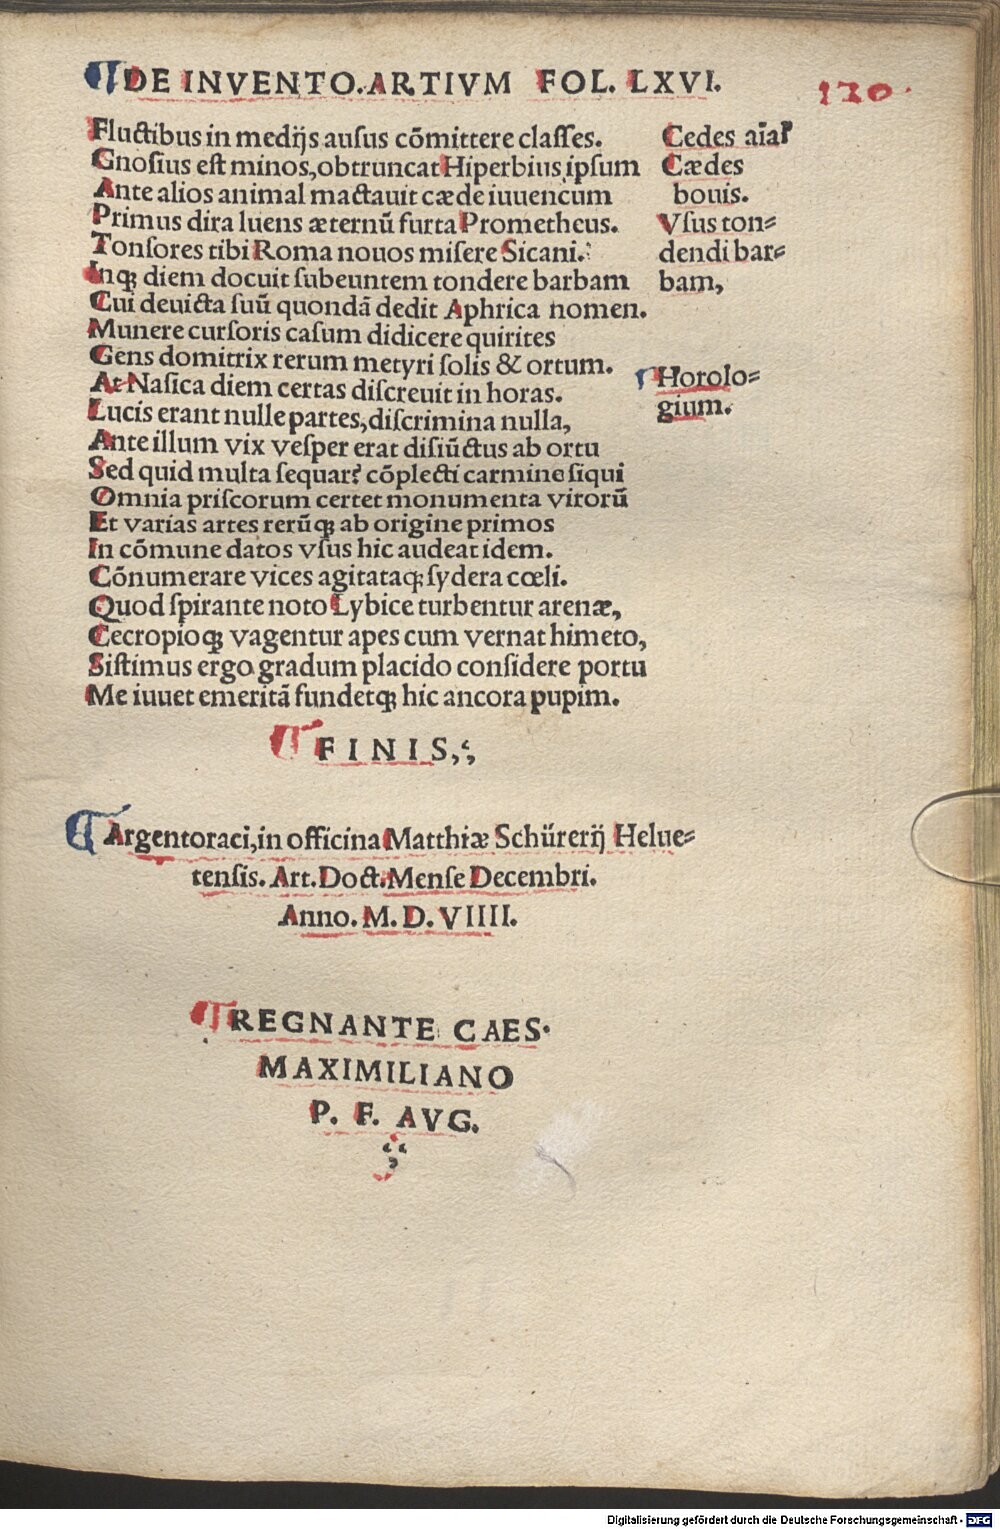 DE INVENTO.ARTIVM FOL. LXVI.
120.
Fluctibus in medijs ausus cōmittere classes.
Gnosius est minos, obtruncat Hiperbius ipsum
Ante alios animal mactauit cæde iuuencum
Primus dira luens æternū furta Prometheus.
Tonsores tibi Roma nouos misere Sicani.
Inqꝫ diem docuit subeuntem tondere barbam
Cui deuicta suū quondā dedit Aphrica nomen.
Munere cursoris casum didicere quirites
Gens domitrix rerum metyri solis & ortum.
At Nasica diem certas discreuit in horas.
Lucis erant nulle partes, discrimina nulla,
Ante illum vix vesper erat disiūctus ab ortu
Sed quid multa sequar? cōplecti carmine siqui
Omnia priscorum certet monumenta virorū
Et varias artes rerūqꝫ ab origine primos
In cōmune datos vsus hic audeat idem.
Cōnumerare vices agitataqꝫ sydera cœli.
Quod spirante noto Lybice turbentur arenæ,
Cecropioqꝫ vagentur apes cum vernat himeto,
Sistimus ergo gradum placido considere portu
Me iuuet emeritā fundetqꝫ hic ancora pupim.
Cedes aīaꝝ
Cædes
bouis.
Vsus ton=
dendi bar=
bam,
Horolo=
gium.
FINIS,
Argentoraci, in officina Matthiæ Schürerij Helue=
tensis. Art. Doct. Mense Decembri.
Anno. M. D. VIIII.
REGNANTE CAES.
MAXIMILIANO
P. F. AVG.
Digitalisierung gefördert durch die Deutsche Forschungsgemeinschaft - DFG